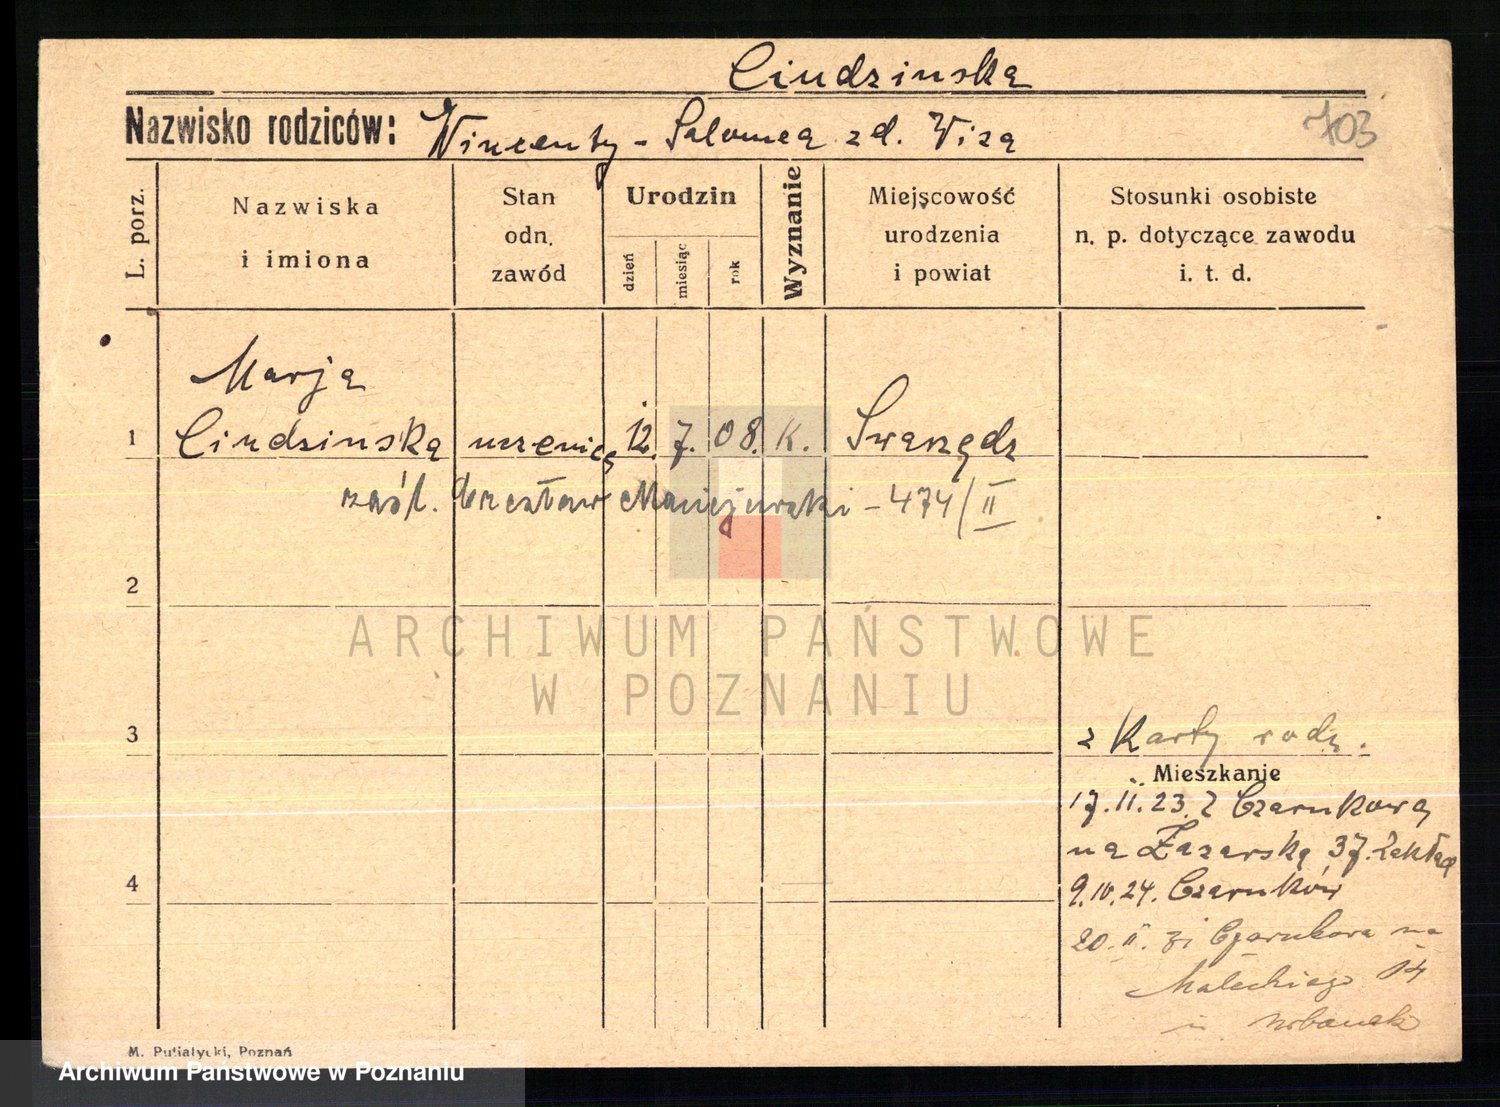 Ciudzinska
Nazwisko rodziców: Wincenty - Salomea zd. Wiza
703
L. porz.
Nazwiska
i imiona
Stan
odn.
zawód
Urodzin
dzień
miesiąc
rok
Wyznanie
Miejscowość
urodzenia
i powiat
Stosunki osobiste
n. p. dotyczące zawodu
i. t. d.
Marja
1 Ciudzinska uczenica 12. 7. 08. K. Swarzędz
zaśl. Czesław Maciejewski - 474/II
2
3
z Karty rodz.
Mieszkanie
17.II.23 z Czarnkowa
na Łazarską 37.
4
9.IV.24. Czarnków
20. II. 31 Czarnkowa na
Małeckiego 14
u Urbanek
M. Putiatycki, Poznań
ARCHIWUM PAŃSTWOWE
W POZNANIU
Archiwum Państwowe w Poznaniu